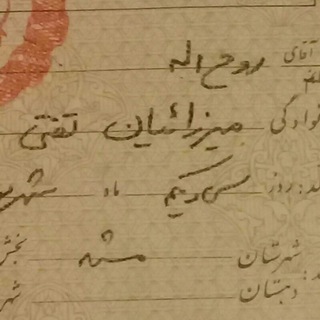 آقای روح اله
خانم
نوادگی میرزائیان تفتی
روز سی و یکم ماه شهریور
شهرستان مشهد بخش
دبستان شهر